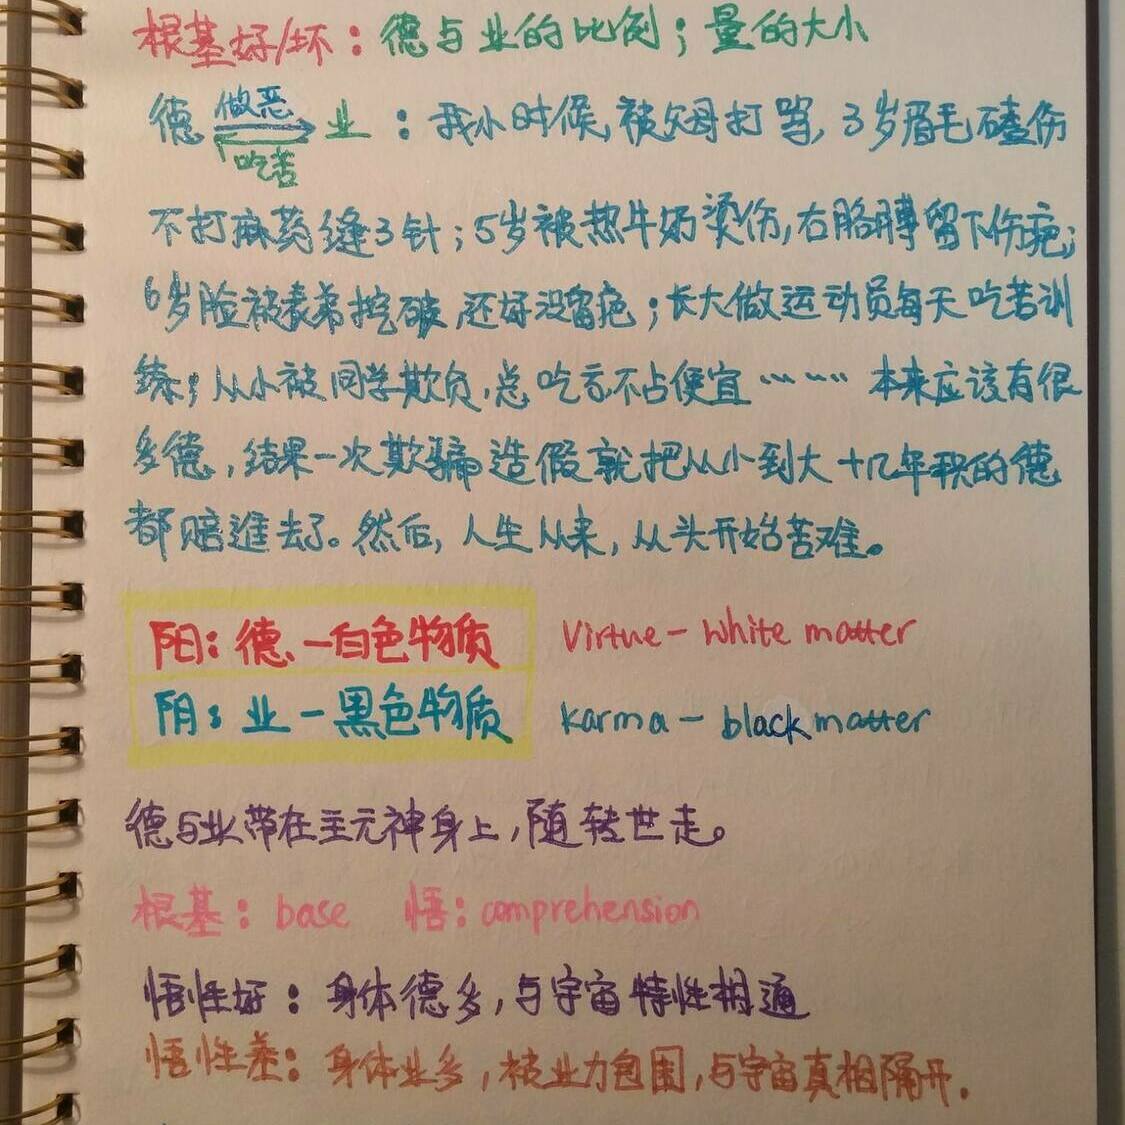 根基好/坏：德与业的比例；量的大小
德 做恶 吃苦 业：我小时候，被父母打骂，3岁眉毛磕伤
不打麻药缝3针；5岁被热牛奶烫伤，右胳膊留下伤疤；
6岁脸被表弟挖破，还好没留疤；长大做运动员每天吃苦训
练；从小被同学欺负，总吃亏不占便宜…… 本来应该有很
多德，结果一次欺骗造假就把从小到大十几年积的德
都赔進去了。然后，人生从来，从头开始苦难。
阳：德－白色物质 Virtue - White matter
阴：业－黑色物质 karma - black matter
德与业带在主元神身上，随转世走。
根基：base 悟：comprehension
悟性好：身体德多，与宇宙特性相通
悟性差：身体业多，被业力包围，与宇宙真相隔开.